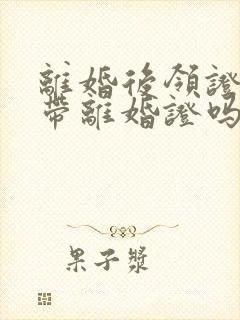 離婚後領證
帶離婚證嗎
果子漿